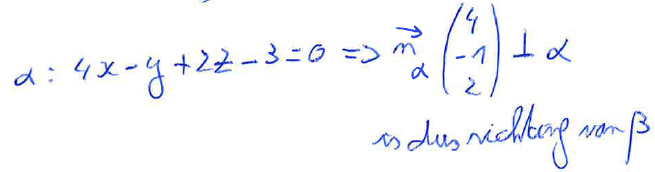 α: 4x-y+2z-3=0 => n⃗_α (4 -1 2) ⊥ α
is dus richting van β